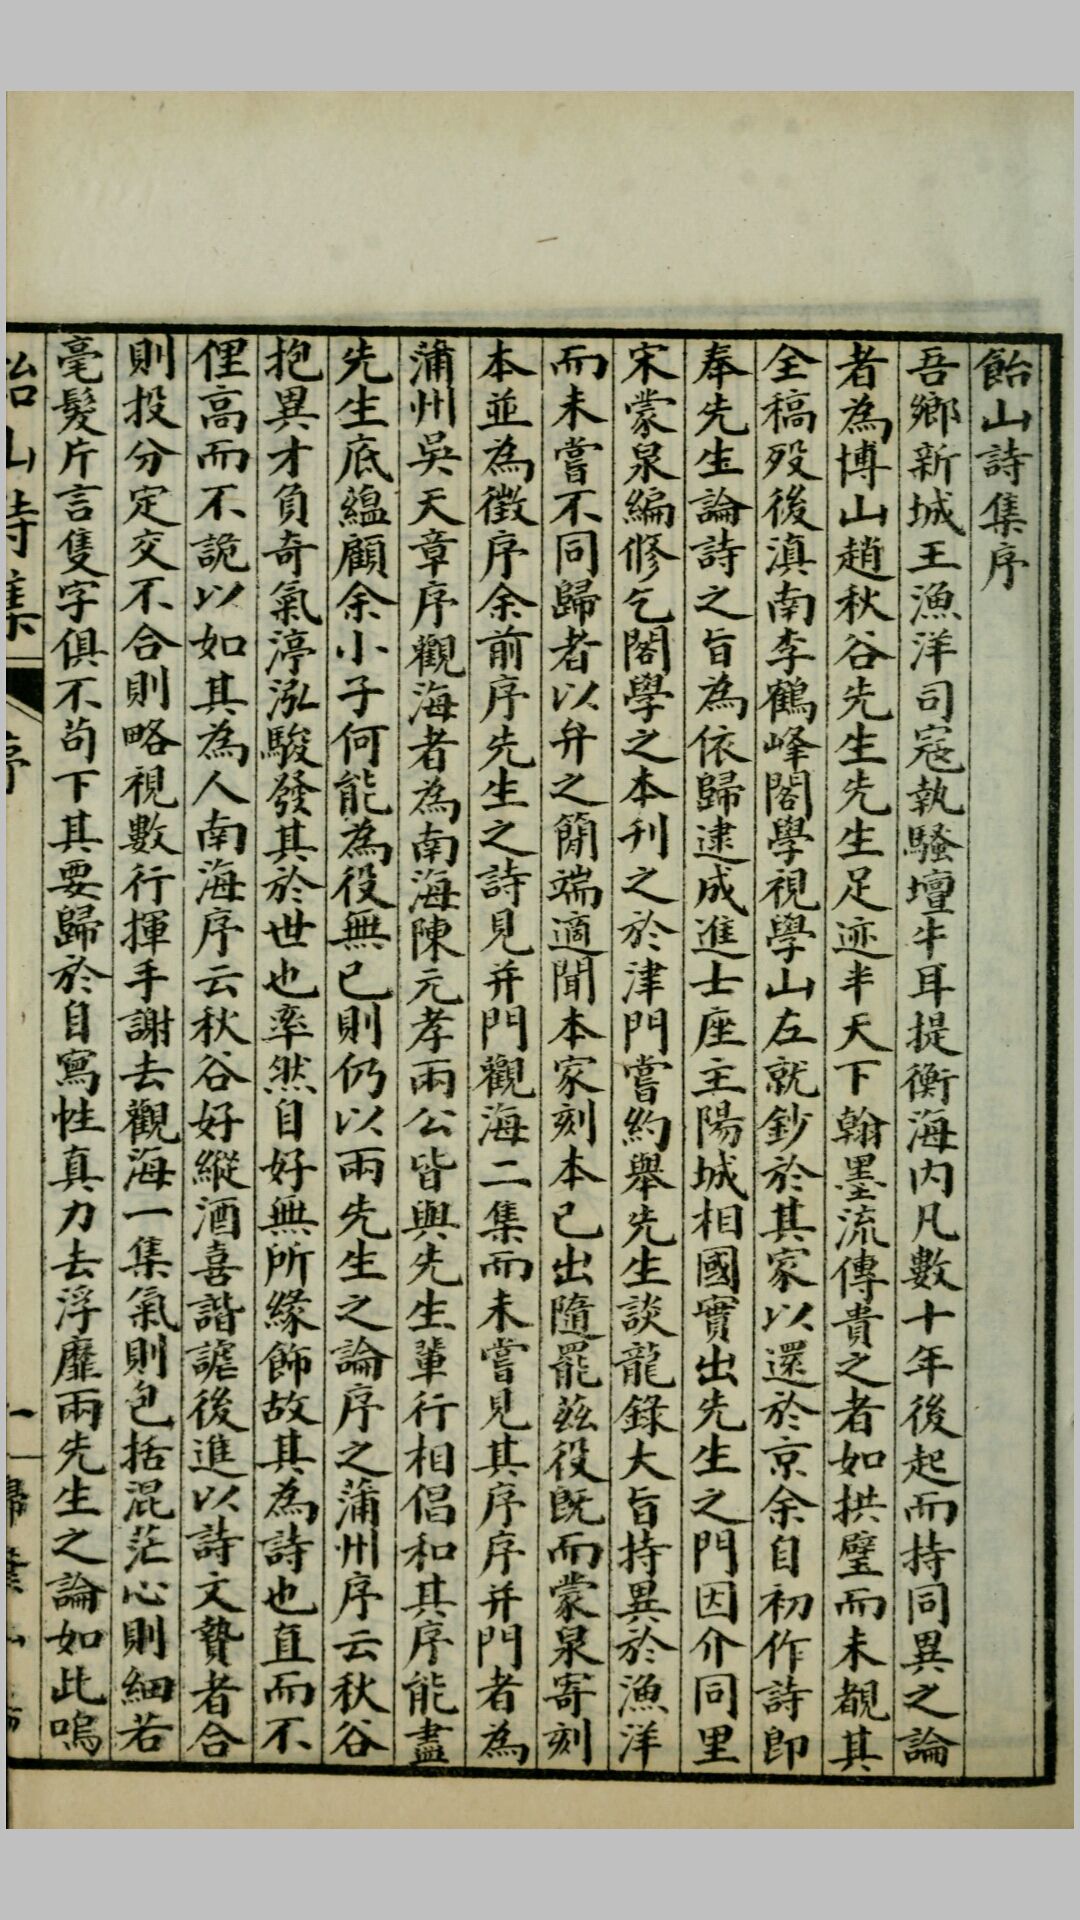 飴山詩集序
吾鄉新城王漁洋司寇執騷壇牛耳提衡海内凡數十年後起而持同異之論
者為博山趙秋谷先生先生足迹半天下翰墨流傳貴之者如拱璧而未覩其
全稿歿後滇南李鶴峰閣學視學山左就鈔於其家以還於京余自初作詩即
奉先生論詩之旨為依歸逮成進士座主陽城相國實出先生之門因介同里
宋蒙泉編修乞閣學之本刊之於津門嘗約舉先生談龍錄大旨持異於漁洋
而未嘗不同歸者以弁之簡端適聞本家刻本已出隨罷兹役既而蒙泉寄刻
本並為徵序余前序先生之詩見并門觀海二集而未嘗見其序序并門者為
蒲州吳天章序觀海者為南海陳元孝兩公皆與先生輩行相倡和其序能盡
先生底蘊顧余小子何能為役無已則仍以兩先生之論序之蒲州序云秋谷
抱異才負奇氣渟泓駿發其於世也率然自好無所緣飾故其為詩也直而不
俚高而不詭以如其為人南海序云秋谷好縱酒喜諧謔後進以詩文贄者合
則投分定交不合則略視數行揮手謝去觀海一集氣則包括混茫心則細若
毫髮片言隻字俱不苟下其要歸於自寫性真力去浮靡兩先生之論如此嗚
飴山詩集
序
一